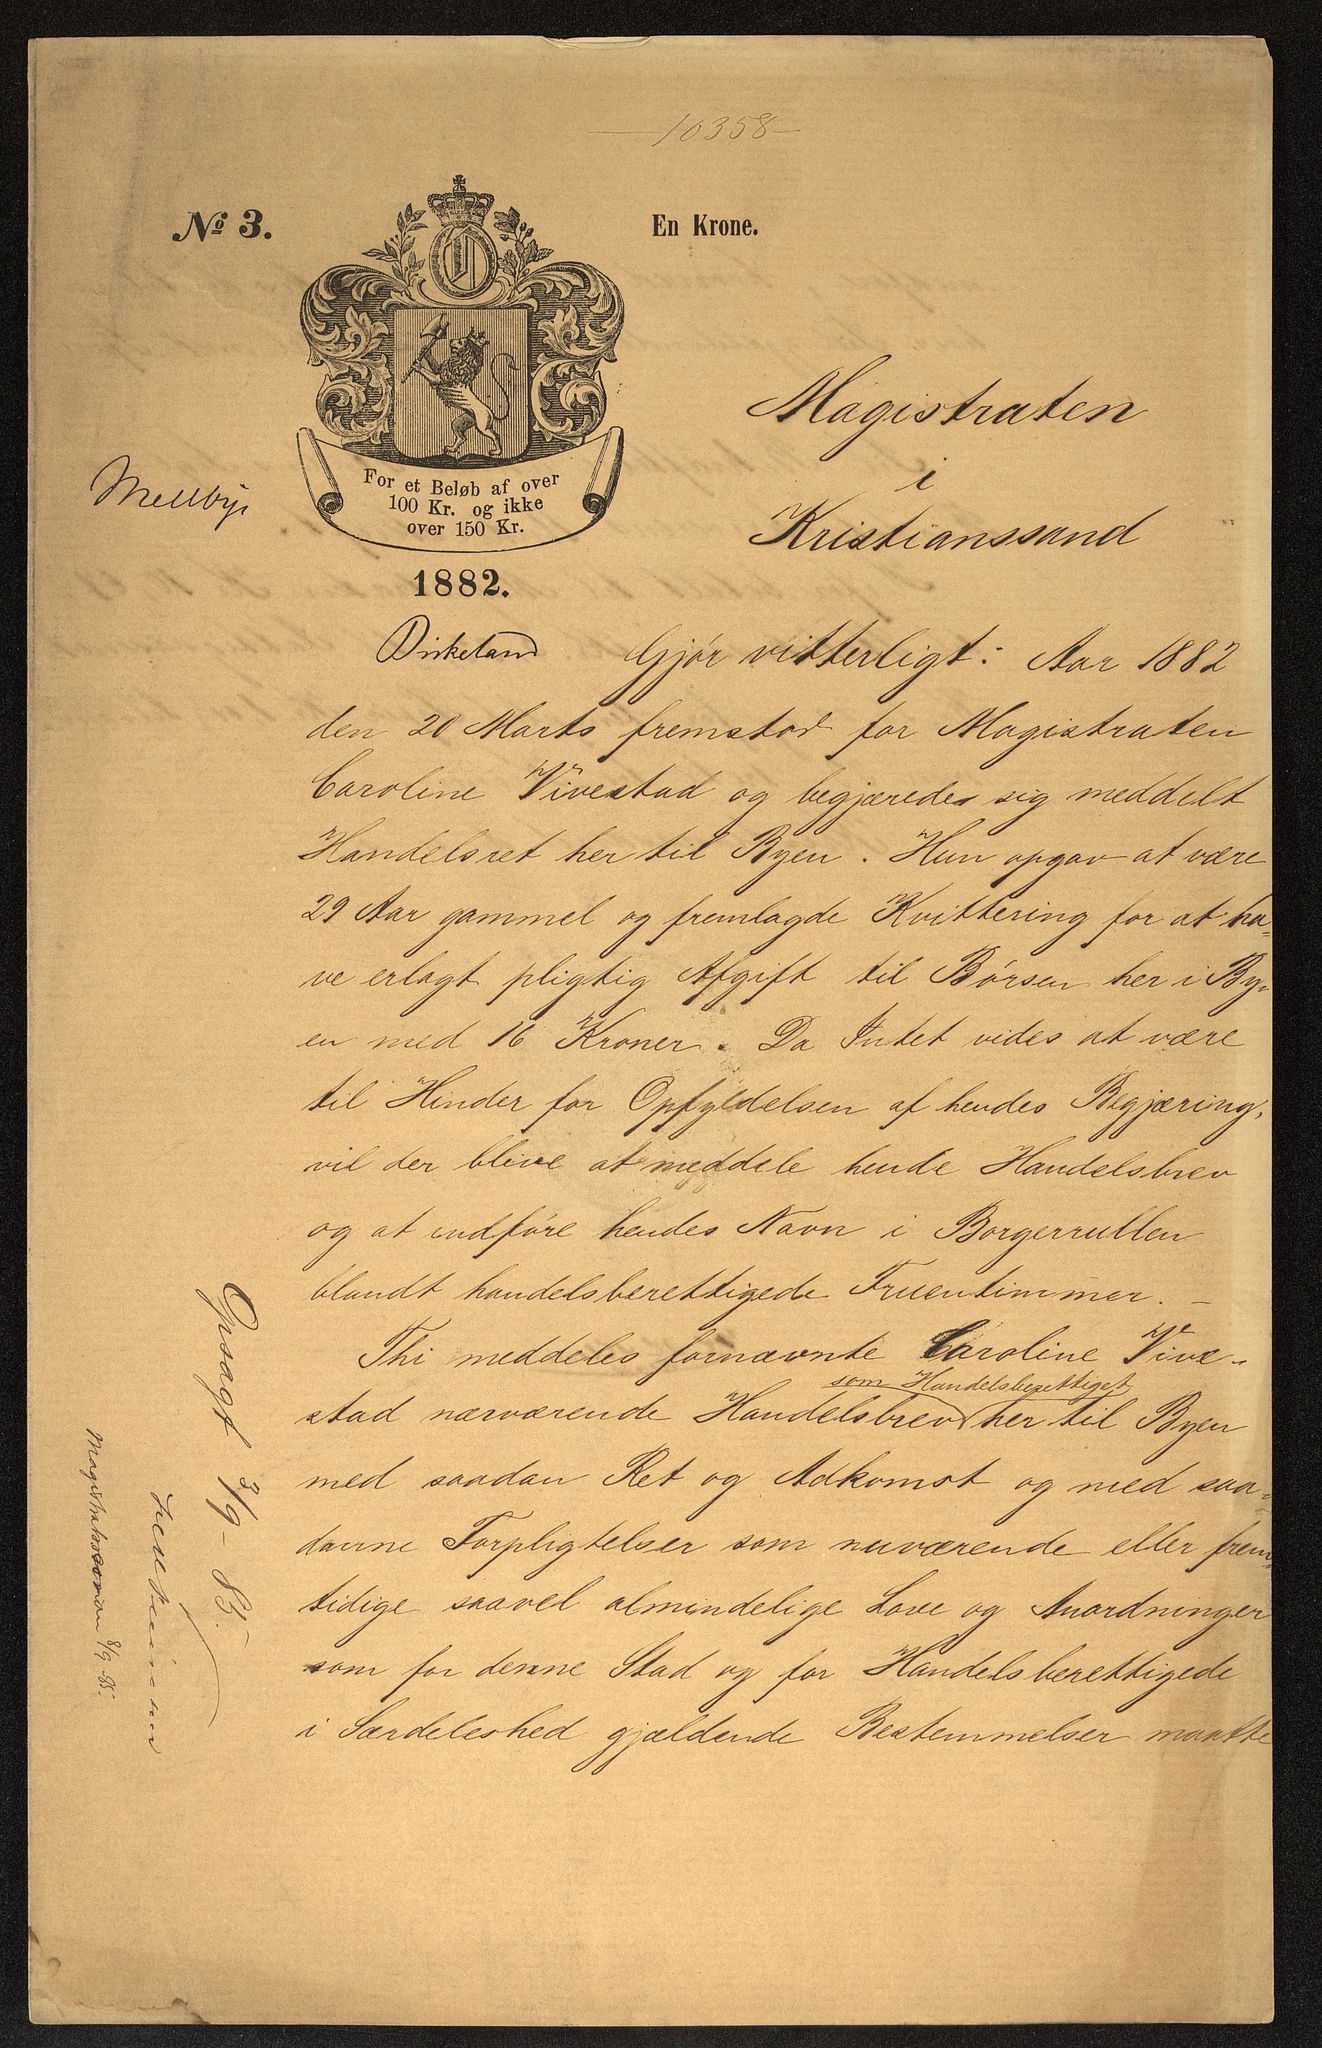 10358
No 3.
En Krone.
For et Beløb af over
100 Kr. og ikke
over 150 Kr.
1882.
Mellbye
Birkeland
Magistraten
i
Kristianssand
Gjór vitterligt: Aar 1882
den 20 Marts fremstod for Magistraten
Caroline Vivestad og begjæredes sig meddelt
Handelsret her til Byen. Hun opgav at være
29 Aar gammel og fremlagde Kvittering for at ha-
ve erlagt pligtig Afgift til Børsen her i By-
en med 16 Kroner. Da Intet vides at være
til Hinder for Opfyldelsen af hendes Begjæring,
vil der blive at meddele hende Handelsbrev
og at indføre hendes Navn i Borgerrullen
blandt handelsberettigede Fruentimmer. –
Thi meddeles fornævnte Caroline Vive-
som Handelsberettiget
stad nærværende Handelsbrev her til Byen
med saadan Ret og Adkomst og med saa-
danne Forpligtelser som nuværende eller frem-
tidige saavel almindelige Love og Anordninger
som for denne Stad og for Handelsberettigede
i Særdeleshed gjældende Bestemmelser maatte
Opsagt 3/9 - 85.
Magistraten 8/9 85.